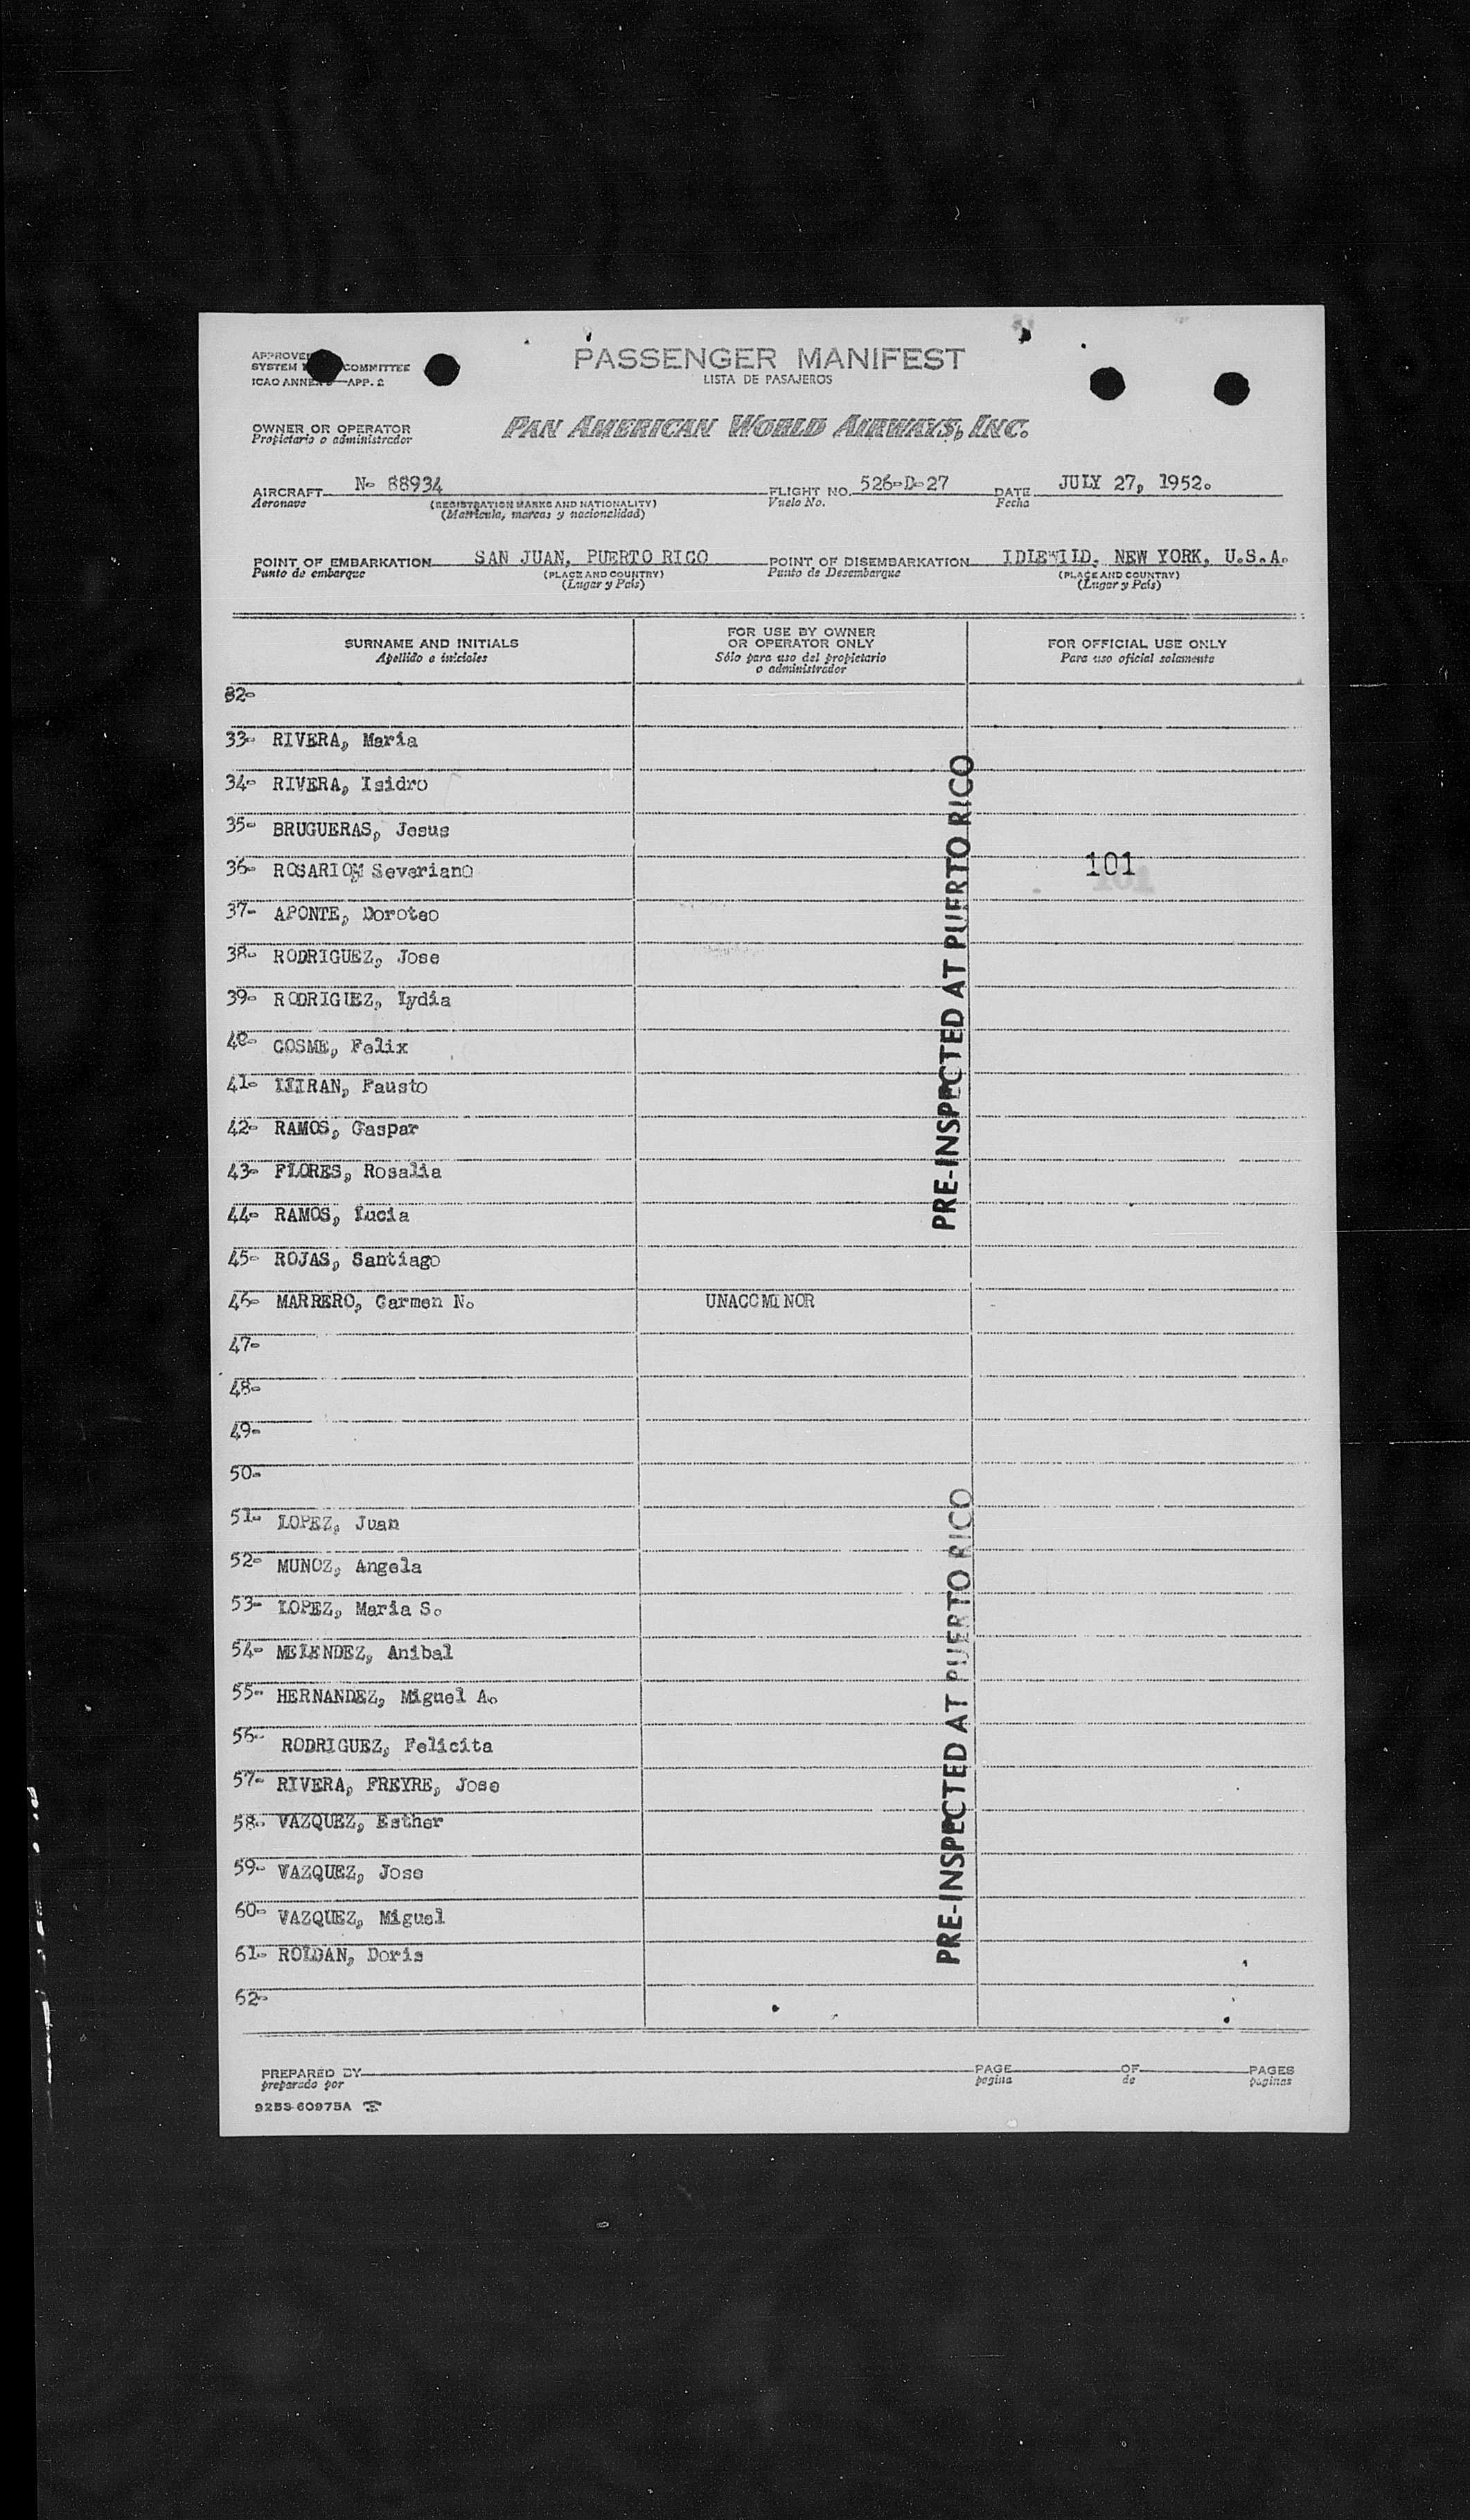 APPROVED
SYSTEM COMMITTEE
ICAO ANNEX 9—APP. 2
PASSENGER MANIFEST
LISTA DE PASAJEROS
OWNER OR OPERATOR
Propietario o administrador
PAN AMERICAN WORLD AIRWAYS, INC.
AIRCRAFT N- 88934 FLIGHT NO. 526-D-27 DATE JULY 27, 1952.
Aeronave (REGISTRATION MARKS AND NATIONALITY) Vuelo No. Fecha
(Matricula, marcas y nacionalidad)
POINT OF EMBARKATION SAN JUAN, PUERTO RICO POINT OF DISEMBARKATION IDLEWILD, NEW YORK, U.S.A.
Punto de embarque (PLACE AND COUNTRY) Punto de Desembarque (PLACE AND COUNTRY)
(Lugar y País) (Lugar y País)
SURNAME AND INITIALS
Apellido e iniciales
FOR USE BY OWNER
OR OPERATOR ONLY
Sólo para uso del propietario
o administrador
FOR OFFICIAL USE ONLY
Para uso oficial solamente
32-
33- RIVERA, Maria
34- RIVERA, Isidro
35- BRUGUERAS, Jesus
36- ROSARIO, Severiano 101
37- APONTE, Doroteo
38- RODRIGUEZ, Jose
39- RODRIGUEZ, Lydia
40- COSME, Felix
41- Fausto
42- RAMOS, Gaspar
43- FLORES, Rosalia
44- RAMOS, Lucia
45- ROJAS, Santiago
46- MARRERO, Carmen N. UNACCMINOR
47-
48-
49-
50-
51- LOPEZ, Juan
52- MUNOZ, Angela
53- LOPEZ, Maria S.
54- MELENDEZ, Anibal
55- HERNANDEZ, Miguel A.
56- RODRIGUEZ, Felicita
57- RIVERA, FREYRE, Jose
58- VAZQUEZ, Esther
59- VAZQUEZ, Jose
60- VAZQUEZ, Miguel
61- ROLDAN, Doris
62-
PRE-INSPECTED AT PUERTO RICO
PRE-INSPECTED AT PUERTO RICO
PREPARED BY PAGE OF PAGES
preparado por pagina de paginas
92BS-60975A